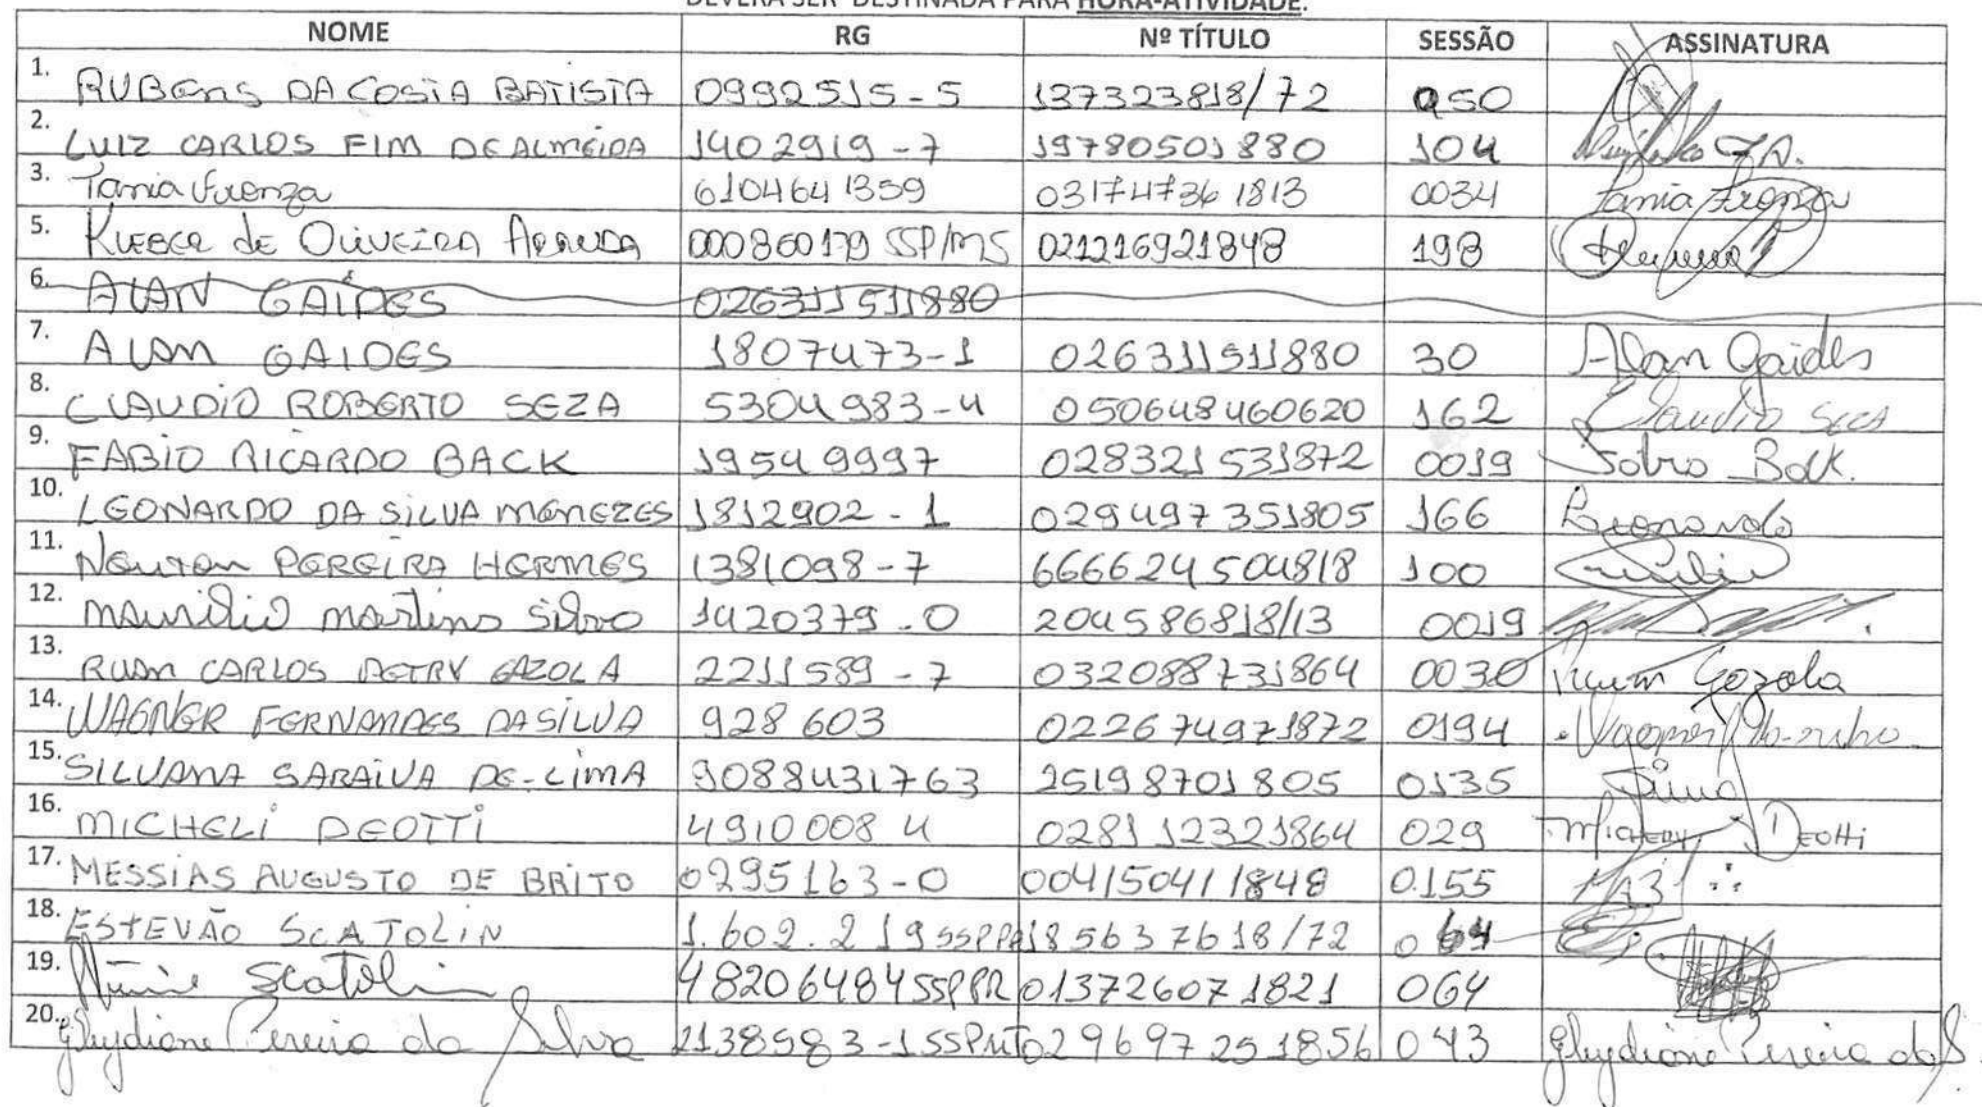 DEVERÁ SER DESTINADA PARA HORA-ATIVIDADE.
NOME RG Nº TÍTULO SESSÃO ASSINATURA
1. RUBENS DA COSTA BATISTA 0992515-5 137323818/72 050
2. LUIZ CARLOS FIM DE ALMEIDA 1402919-7 19780501880 104
3. Tania Fronza 6104641359 031747361813 0034 Tania Fronza
5. KLEBER de OLIVEIRA ARRUDA 000860179 SSP/MS 021216921848 198
6. ALAN GAIDES 026311511880
7. ALAN GAIDES 1807473-1 026311511880 30 Alan Gaides
8. CLAUDIO ROBERTO SEZA 5304983-4 050648460620 162 Claudio Seza
9. FABIO RICARDO BACK 19549997 028321531872 0019 Fabio Back.
10. LEONARDO DA SILVA MENEZES 1812902-1 029497351805 166 Leonardo
11. NEUTON PEREIRA HERMES 1381098-7 666624504818 100
12. Maurilio Martins Silva 1420379-0 204586818/13 0019
13. RUAN CARLOS PETRY GAZOLA 2211589-7 032088731864 0030 Ruan Gazola
14. WAGNER FERNANDES DA SILVA 928603 022674971872 0194 Wagner
15. SILVANA SARAIVA DE LIMA 9088431763 25198701805 0135
16. MICHELI DEOTTI 49100084 028112321864 029 Micheli Deotti
17. MESSIAS AUGUSTO DE BRITO 0295163-0 004150411848 0155
18. ESTEVÃO SCATOLIN 1.602.219 SSPPR 185637618/72 064
19. Scatolin 48206484 SSPPR 013726071821 064
20. Gleydione Pereira da Silva 2138583-1 SSPMT 029697251856 043 Gleydione Pereira da S.